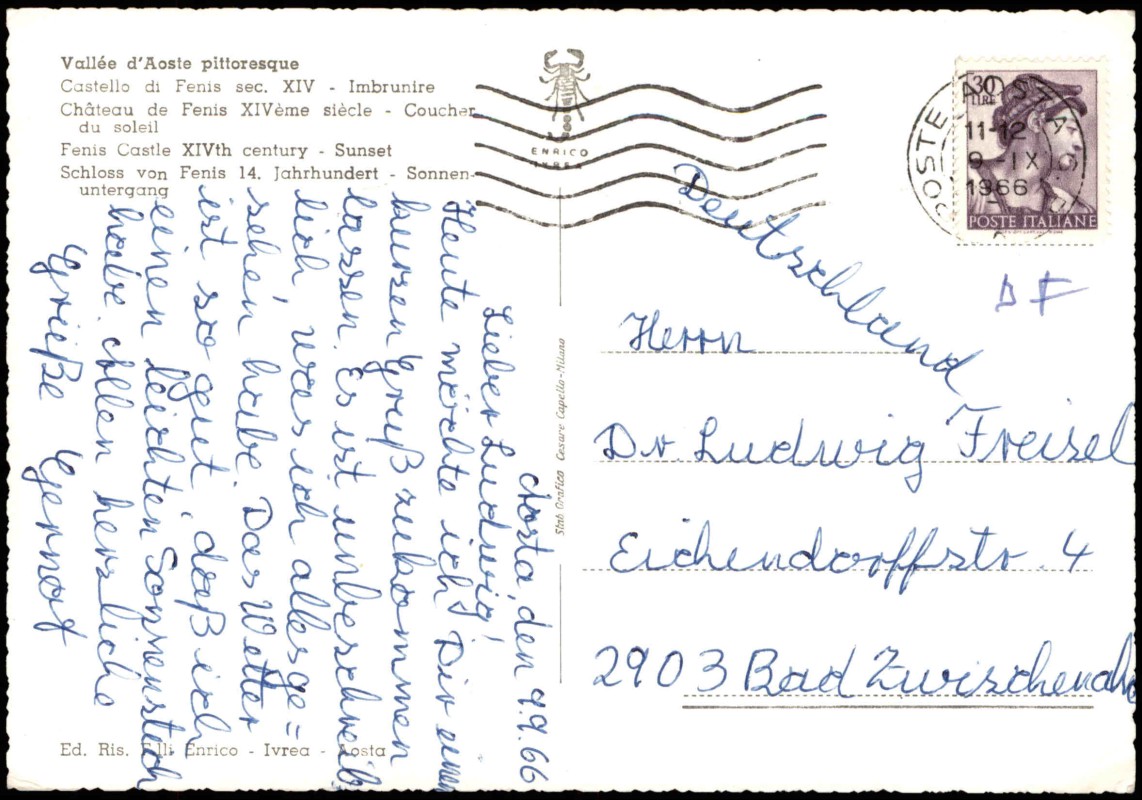 Vallée d'Aoste pittoresque
Castello di Fenis sec. XIV - Imbrunire
Château de Fenis XIVème siècle - Coucher
du soleil
Fenis Castle XIVth century - Sunset
Schloss von Fenis 14. Jahrhundert - Sonnen-
untergang
ENRICO
IVREA
30
LIRE
POSTE AOSTA
11-12
9-IX
1966
POSTE ITALIANE
Deutschland
D F
Herrn
Dr. Ludwig Freisel
Eichendorffstr. 4
2903 Bad Zwischenahn
Aosta, den 9.9.66
Lieber Ludwig!
Heute möchte ich Dir einen
kurzen Gruß zukommen
lassen. Es ist unbeschreib-
lich was ich alles ge=
sehen habe. Das Wetter
ist so gut, daß ich
einen leichten Sonnenstich
habe. Allen herzliche
Grüße Gernot
Stab Grafico Cesare Capello-Milano
Ed. Ris. F.lli Enrico - Ivrea - Aosta